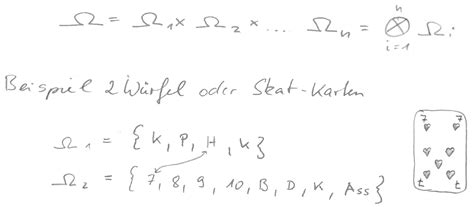 Ω = Ω₁ x Ω₂ x .... Ωₙ = ⨂ᵢ₌₁ⁿ Ωᵢ
Beispiel 2 Würfel oder Skat-Karten
Ω₁ = { K, P, H, K }
Ω₂ = { 7, 8, 9, 10, B, D, K, Ass }
7 7
7 7